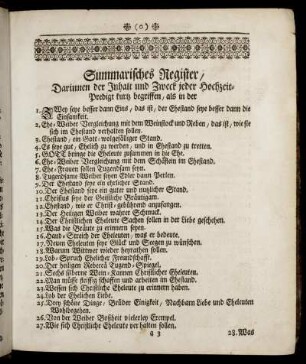 (o)
Summarisches Register/
Darinnen der Inhalt und Zweck jeder Hochzeit-
Predigt kurtz begriffen, als in der
1. Zwey seye besser dann Eins, das ist, der Ehestand seye besser dann die
Einsamkeit.
2. Ehe-Weiber Vergleichung mit dem Weinstock und Reben, das ist, wie sie
sich im Ehestand verhalten sollen.
3. Ehestand, ein Gott-wolgefälliger Stand.
4. Es seye gut, Ehelich zu werden, und in Ehestand zu tretten.
5. GOTT bringe die Eheleute zusammen in die Ehe.
6. Ehe-Weiber Vergleichung mit dem Schäflein im Ehestand.
7. Ehe-Frauen sollen Tugendsam seyn.
8. Tugendsame Weiber seyen Edler dann Perlen.
9. Der Ehestand seye ein ehrlicher Stand.
10. Der Ehestand seye ein guter und nutzlicher Stand.
11. Christus seye der Geistliche Bräutigam.
12. Ehestand, wie er Christ-gebührend anzufangen.
13. Der Heiligen Weiber wahrer Schmuck.
14. Der Christlichen Eheleute Sachen sollen in der Liebe geschehen.
15. Was die Bräute zu erinnern seyen.
16. Hauß-Streich der Eheleuten, was er bedeute.
17. Neuen Eheleuten seye Glück und Seegen zu wünschen.
18. Warum Wittwer wieder heyrathen sollen.
19. Lob-Spruch Ehelicher Freundschafft.
20. Der heiligen Rebeccä Tugend-Spiegel.
21. Sechs silberne Wein-Kannen Christlicher Eheleuten.
22. Man müsse fleissig schaffen und arbeiten im Ehestand.
23. Wessen sich Christliche Eheleute zu erinnern haben.
24. Lob der Ehelichen Liebe.
25. Drey schöne Dinge: Brüder Einigkeit, Nachbarn Liebe und Eheleuten
Wohlbegehen.
26. Von der Weiber Boßheit vielerley Exempel.
27. Wie sich Christliche Eheleute verhalten sollen.
a 3
28. Was